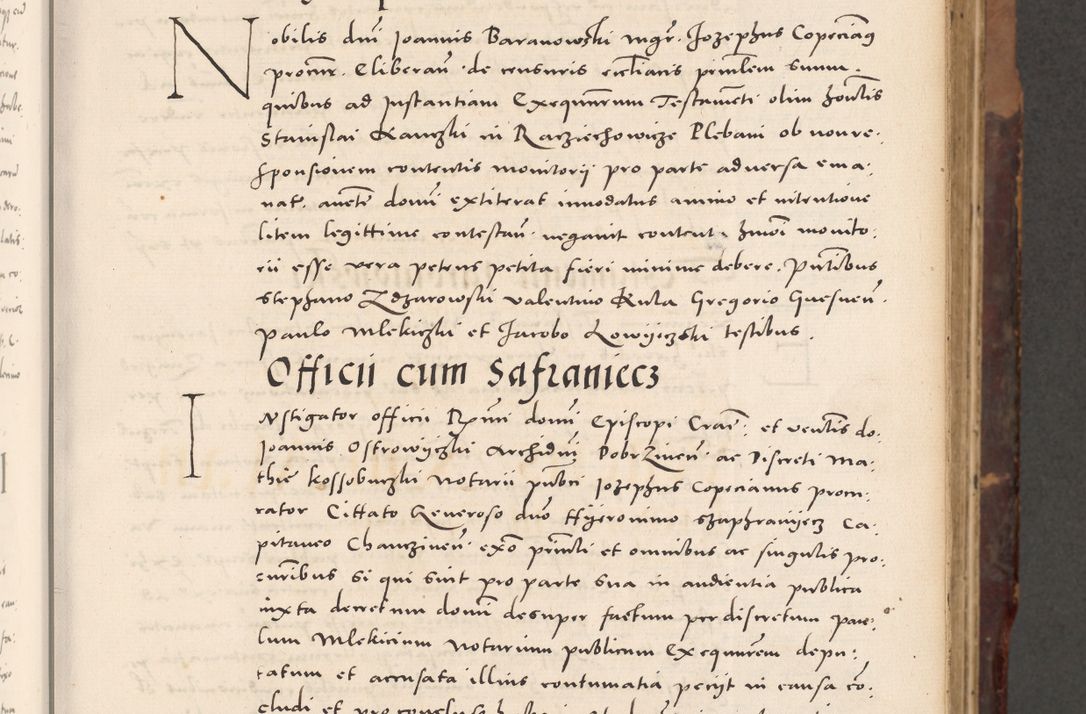 Nobilis dni Joannis Baranowski mgr. Josephus Copeciang
procur. E liberan. de censuris ecctiacis princlem suum.
quibus ad Instantiam Exequutrum Testamenti olim honelis
Stanislai Kanczki in Racziechowicze Plebani ob non re:
sponsionem contentis monitorii pro parte adversa ema:
nat. autem domi extiterat innodatus animo et intentione
litem legittime contestan. negavit content. hmoi monito:
rii esse vera petrus petita fieri minime debere. Pntibus
Stephano Zdzarowski Valentino Kula Gregorio Guesnen.
Paulo Mlekiczki et Jacobo Lowyczski testibus.
Officii cum Safraniecz
INstigator officii Rmi domi Episcopi Cracn. et ventis do:
Joannis Ostrowyczki Archidni Dobrzinen. ac Discreti Ma:
thie Kossobuczki Notarii publici Josephus Copecianus procu:
rator Cittato Generoso dno Hyeronimo Szaphranyecz Ca:
pitaneo Chanczinen. exo principli et omnibus ac singulis pro:
curibus si qui sint pro parte sua in audientia publica
iuxta decretum domi desuper factum per discretum pau:
lum Mlekicium Notarium publicum Exequurem depu:
tatum et accusata illius contumatia peciit in causa co:
cludi et pro conclusa